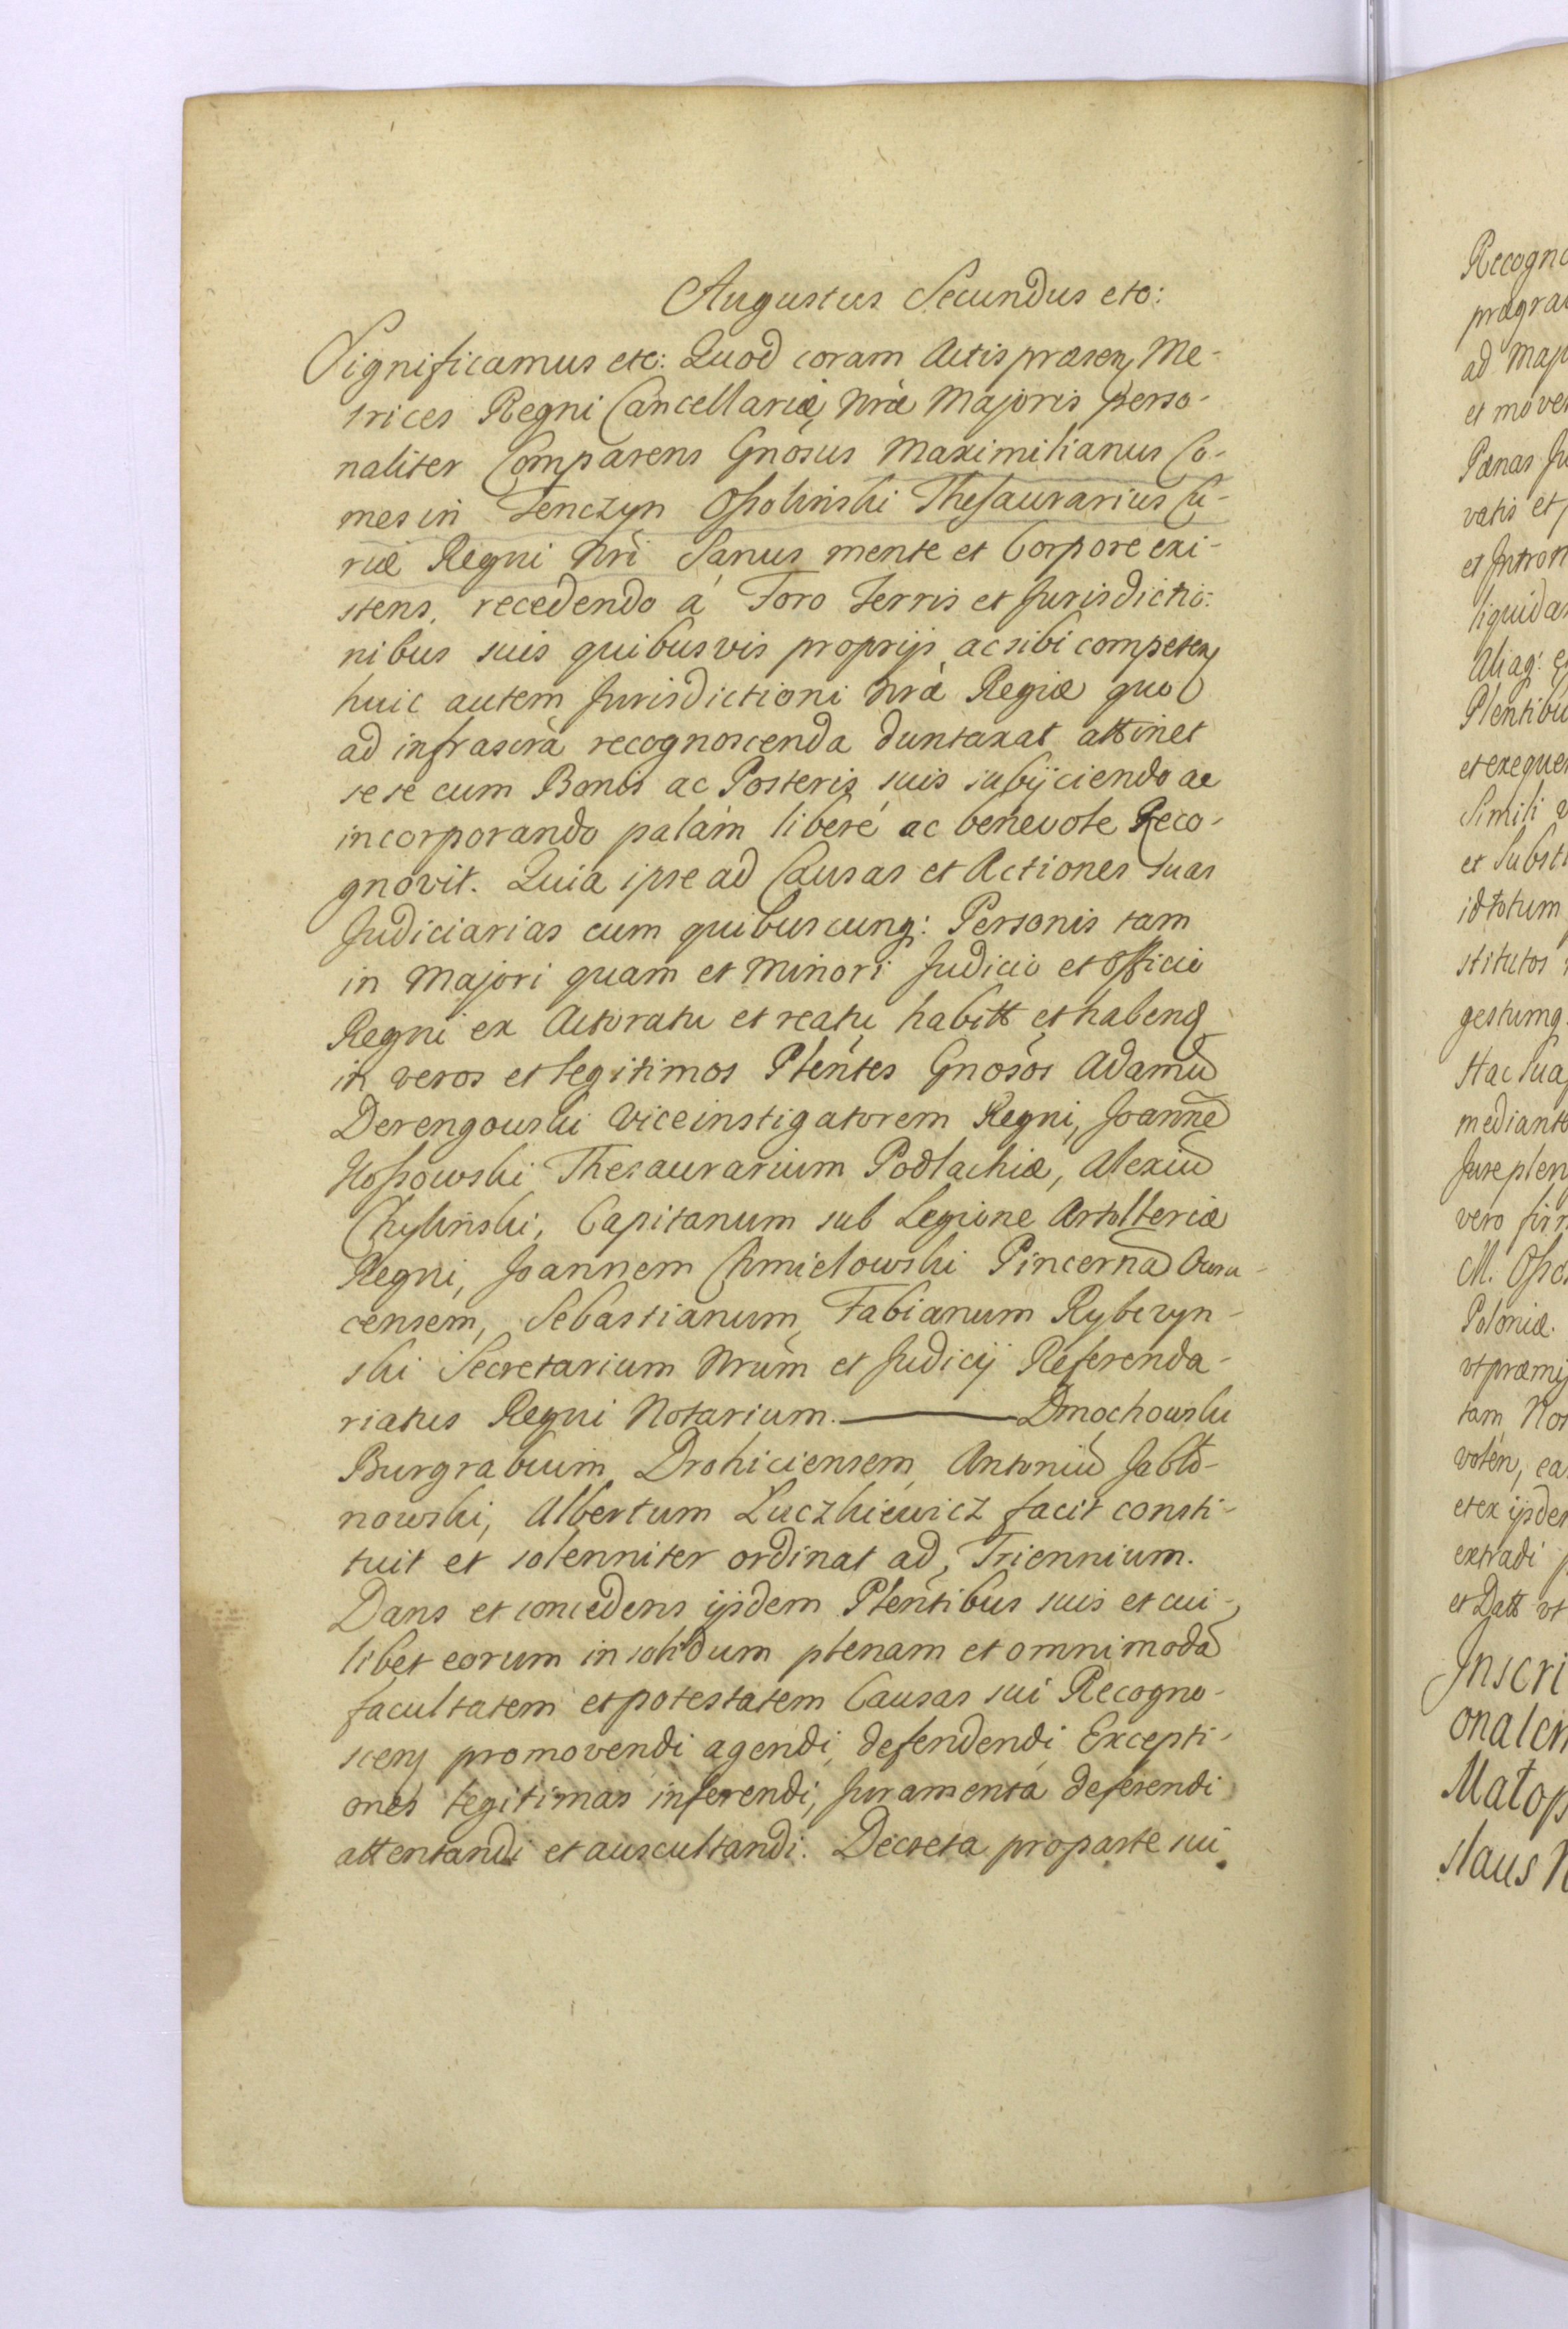 Augustus Secundus etc:
Significamus etc: Quod coram Actis præsen Me-
trices Regni Cancellariæ Nræ Majoris perso-
naliter Comparens Gnosus Maximilianus Co-
mes in Tenczyn Ossolinski Thesaurarius Cu-
riæ Regni Nri Sanus mente et Corpore exi-
stens, recedendo á Foro Terris et Jurisdictio-
nibus suis quibusvis proprijs ac sibi competen
huic autem Jurisdictioni Nræ Regiæ quo
ad infrascra recognoscenda duntaxat attinet
sese cum Bonis ac Posteris suis subijciendo ac
incorporando palám liberé ac benevole Reco-
gnovit. Quia ipse ad Causas et Actiones suas
Judiciarias cum quibuscunq: Personis tam
in Majori quam et Minori Judicio et Officio
Regni ex Actoratu et reatu habitt et habend
in veros et legitimos Plentes Gnosos Adamū
Derengowski Viceinstigatorem Regni, Joannē
Kossowski Thesaurarium Podlachiæ, Alexiū
Chylinski, Capitanum sub Legione Artolleriæ
Regni, Joannem Chmielowski Pincernā Owru-
censem, Sebastianum Fabianum Rybczyn-
ski Secretarium Nrum et Judicij Referenda-
riatus Regni Notarium. — Dmochowski
Burgrabium Drohiciensem Antoniū Jabło-
nowski, Albertum Luczkiewicz facit consti-
tuit et solenniter ordinat ad Triennium.
Dans et concedens ijsdem Plentibus suis et cui-
libet eorum in solidum plenam et omnimodā
facultatem et potestatem Causas sui Recogno-
scen promovendi agendi, defendendi Excepti-
ones legitimas inferendi, Juramenta deferendi
attentandi et auscultandi. Decreta pro parte sui